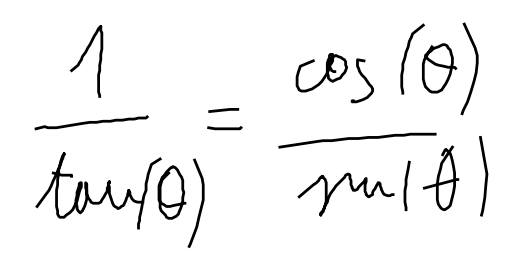 1/tan(θ) = cos(θ)/sin(θ)